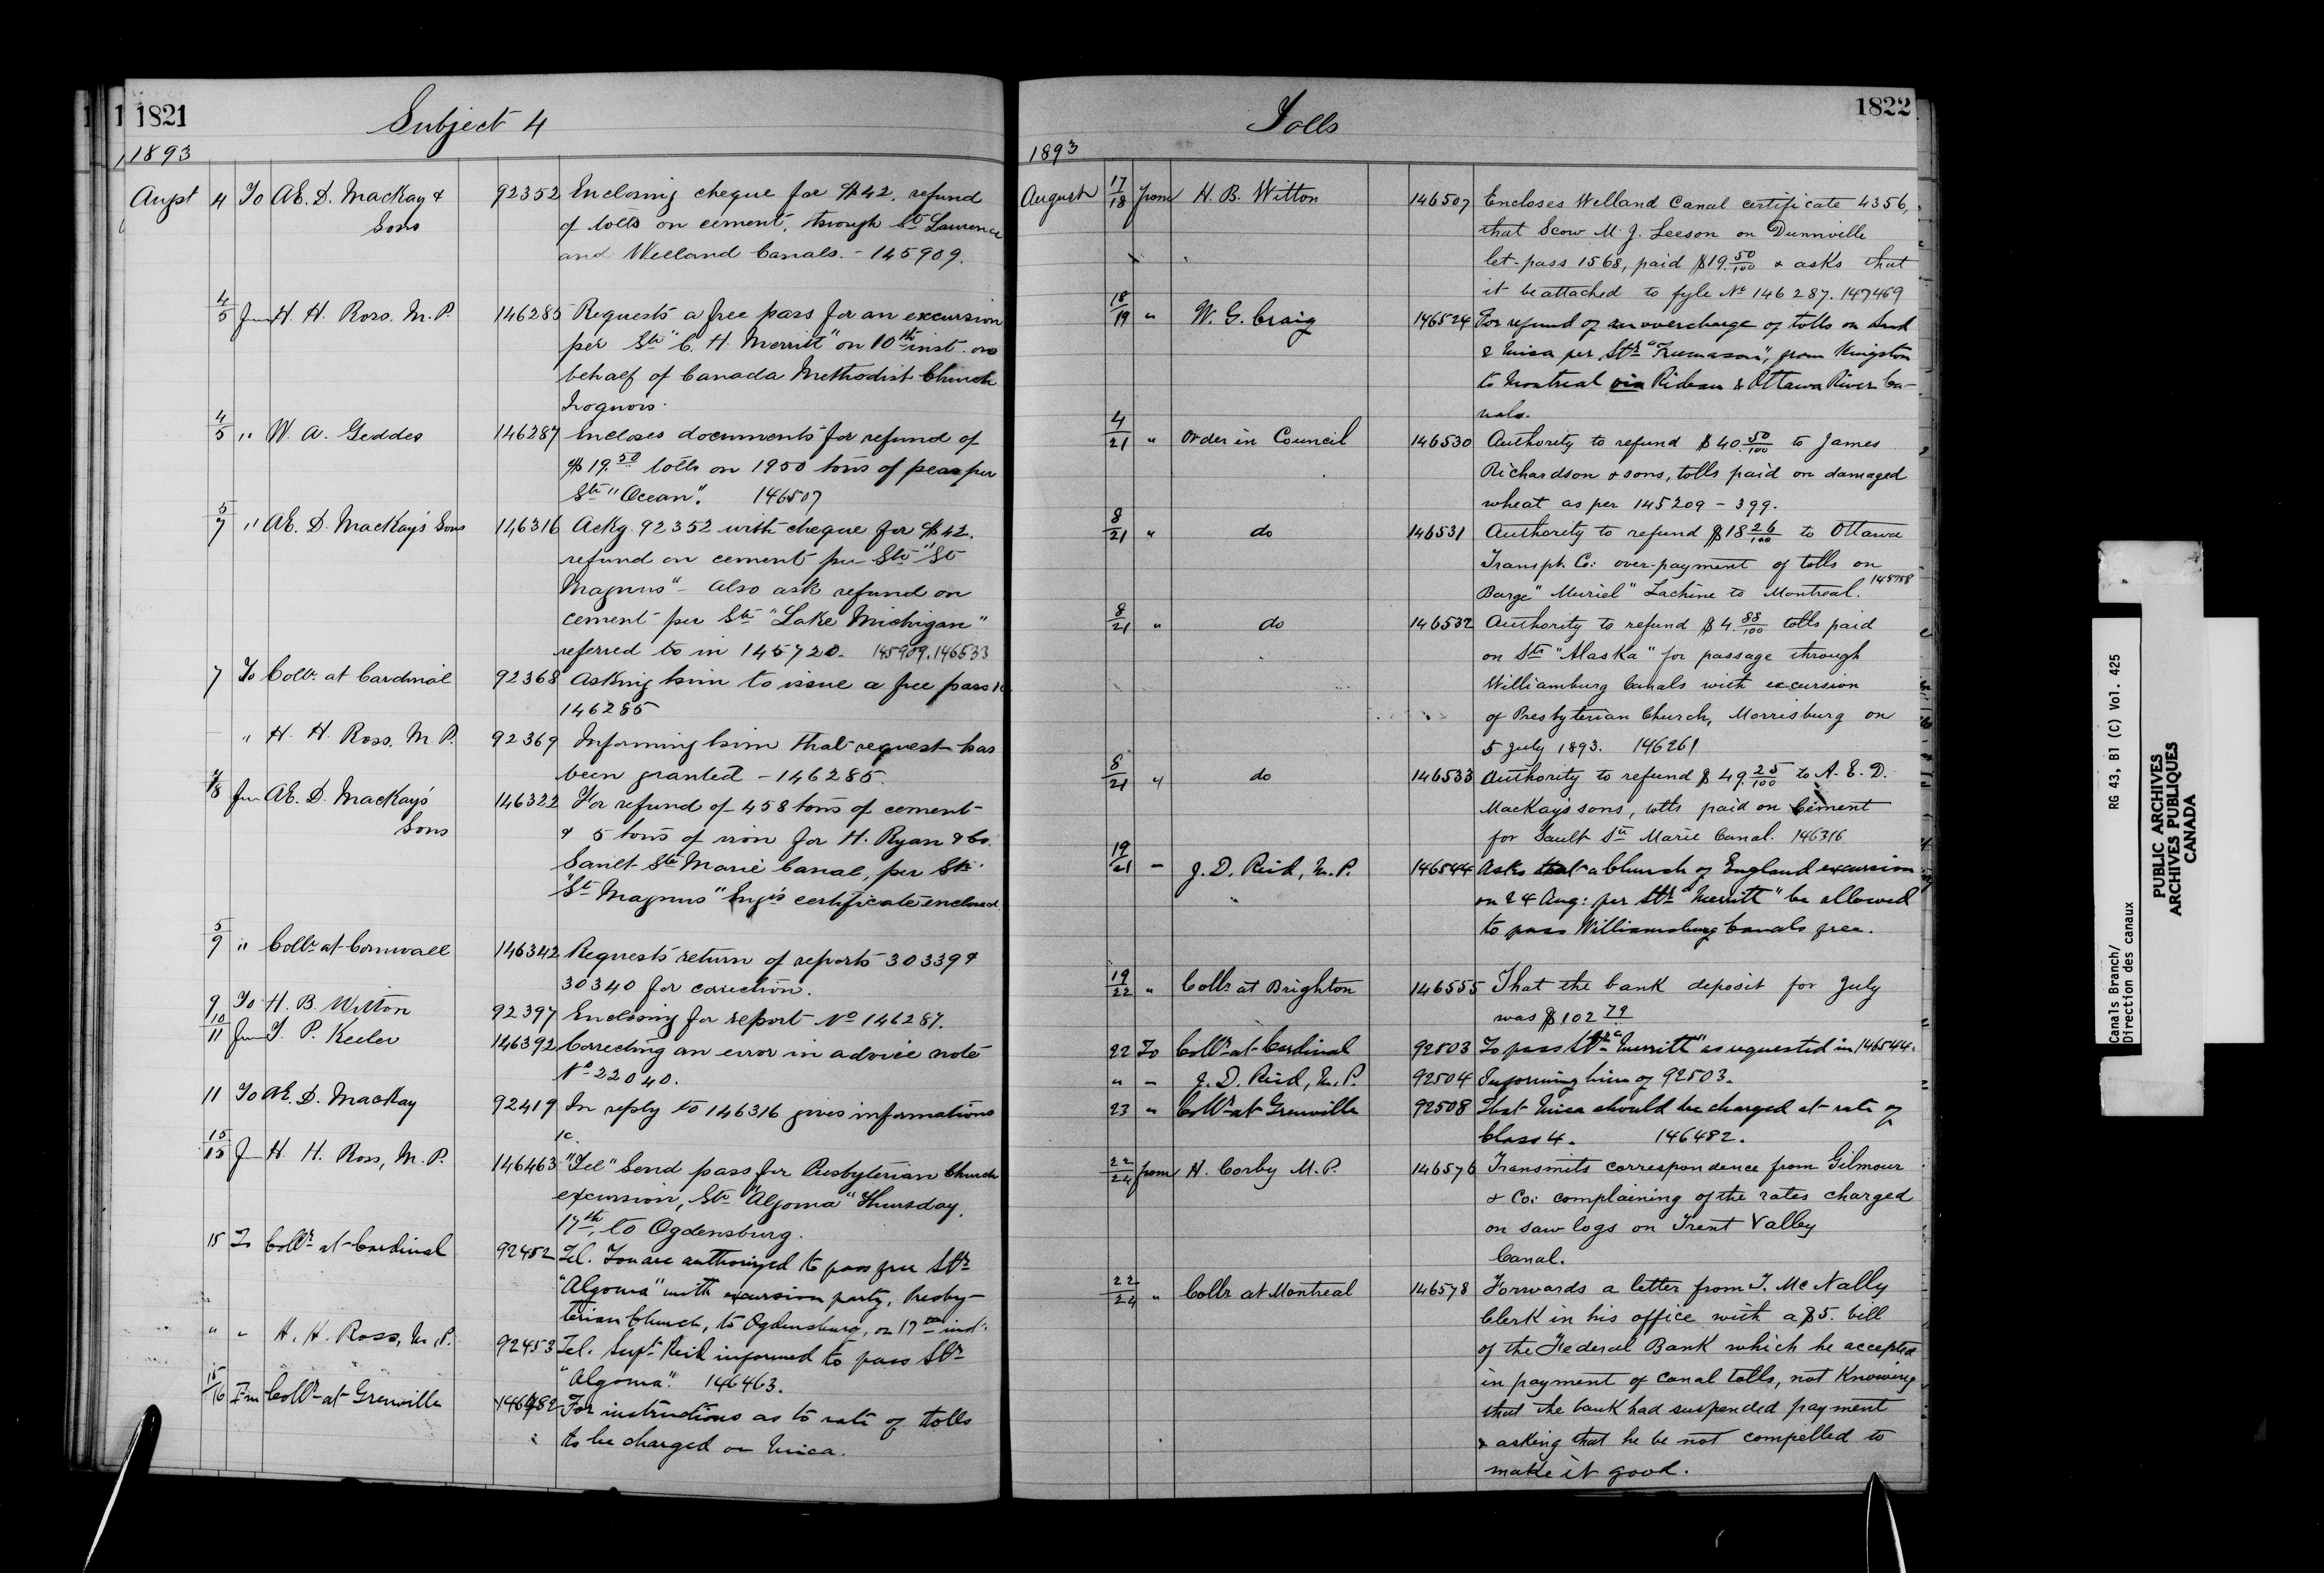 1821
Subject 4
1893
Augst 4 To A.E. D. MacKay & 92352 Enclosing cheque for $42. refund
Sons of tolls on cement, through St Laurence
and Welland Canals. - 145909.
4/5 Frm H. H. Ross. M.P. 146285 Requests a free pass for an excursion
per Str "C. H. Merritt" on 10th inst. on
behalf of Canada Methodist Church
Iroquois.
4/5 " W. A. Geddes 146287 Encloses documents for refund of
$19.50 tolls on 1950 tons of peas per
Str "Ocean". 146507
5/7 " A.E. D. MacKay's Sons 146316 Ackg. 92352 with cheque for $42.
refund on cement per Str "St
Magnus" - Also ask refund on
cement per Str "Lake Michigan"
referred to in 145720. 145909.146533
7 To Collr. at Cardinal 92368 Asking him to issue a free pass
146285
" H. H. Ross. M P. 92369 Informing him that request has
been granted - 146285.
7/8 Frm A.E. D. MacKay's 146322 For refund of 458 tons of cement
Sons & 5 tons of iron for H. Ryan & Co.
Sault Ste Marie Canal, per Str
"St Magnus" Eng's certificate enclosed.
5/9 " Collr at Cornwall 146342 Requests return of reports 30339 &
30340 for correction.
9 To H. B. Witton 92397 Enclosing for report No 146287.
10/11 Frm T. P. Keeler 146392 Correcting an error in advice note
No 22040.
11 To A.E. D. MacKay 92419 In reply to 146316 gives informations
15/15 F H. H. Ross, M.P. 146463 "Tel" Send pass for Presbyterian Church
excursion, Str "Algoma" Thursday,
17th, to Ogdensburg.
15 To Collr at Cardinal 92452 Tel. You are authorized to pass free Str
"Algoma" with excursion party, Presby-
terian Church, to Ogdensburg, on 17th inst.
" " H. H. Ross, M.P. 92453 Tel. Supt Reid informed to pass Str
"Algoma". 146463.
15/16 Frm Collr at Grenville 146482 For instructions as to rate of tolls
to be charged on Mica.
1822
Tolls
1893
August 17/18 from H. B. Witton 146507 Encloses Welland Canal certificate 4356,
that Scow M. J. Leeson on Dunnville
let-pass 1568, paid $19.50/100 & asks that
it be attached to fyle No 146287. 147469
18/19 " W. G. Craig 146524 For refund of an overcharge of tolls on
& Mica per Str "Freemason", from Kingston
to Montreal via Rideau & Ottawa River Ca-
nals.
4/21 " Order in Council 146530 Authority to refund $40.50/100 to James
Richardson & sons, tolls paid on damaged
wheat as per 145209 - 399.
8/21 " do 146531 Authority to refund $18 26/100 to Ottawa
Transpt. Co: over-payment of tolls on
Barge "Muriel" Lachine to Montreal. 145758
8/21 " do 146532 Authority to refund $4.88/100 tolls paid
on Str "Alaska" for passage through
Williamburg Canals with excursion
of Presbyterian Church, Morrisburg on
5 July 1893. 146261
8/21 " do 146533 Authority to refund $49.25/100 to A. E. D.
MacKay's sons, tolls paid on Cement
for Sault Ste Marie Canal. 146316
19/21 - J. D. Reid, M.P. 146544 Asks that a Church of England excursion
on 24 Aug: per Str "Merritt" be allowed
to pass Williamsburg Canals free.
19/22 " Collr at Brighton 146555 That the bank deposit for July
was $102 79
22 To Collr at Cardinal 92503 To pass Str "Merritt" as requested in 146544.
" - J. D. Reid, M.P. 92504 Informing him of 92503.
23 " Collr at Grenville 92508 That Mica should be charged at rate of
Class 4. 146482.
22/24 from H. Corby M.P. 146576 Transmits correspondence from Gilmour
& Co: complaining of the rates charged
on saw logs on Trent Valley
Canal.
22/24 " Collr at Montreal 146578 Forwards a letter from T. McNally
Clerk in his office with a $5. bill
of the Federal Bank which he accepted
in payment of canal tolls, not Knowing
that the bank had suspended payment
& asking that he be not compelled to
make it good.
Canals Branch/ RG 43, B1 (C) Vol. 425
Direction des canaux
PUBLIC ARCHIVES
ARCHIVES PUBLIQUES
CANADA